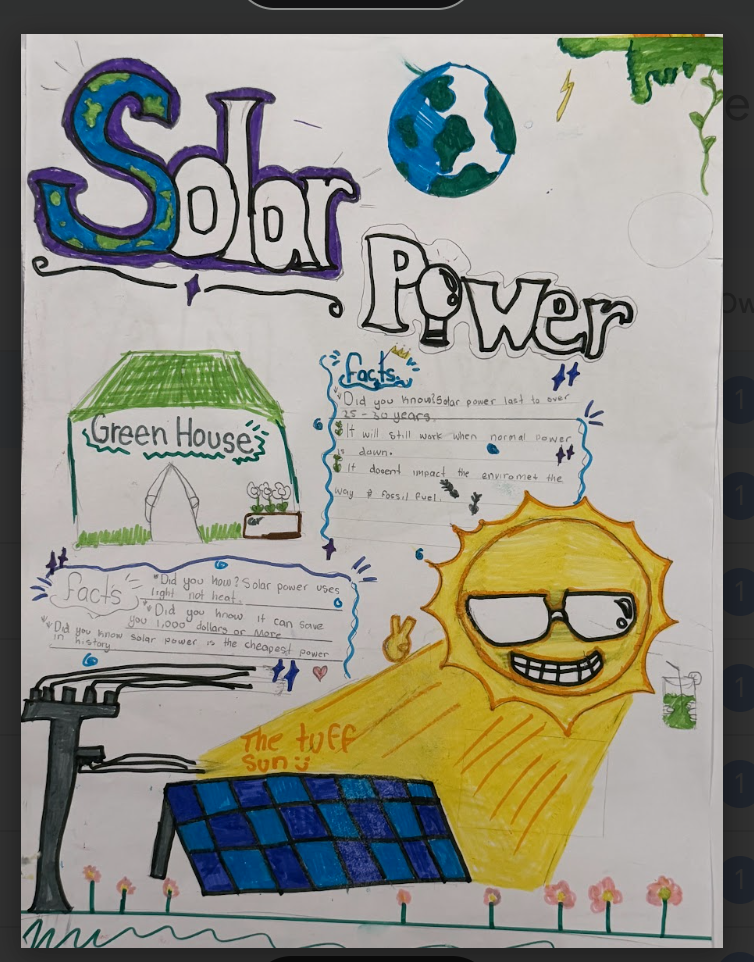 Solar
Power
Green House
facts
Did you know? Solar power last to over
25 - 30 years.
It will still work when normal power
is down.
It doesnt impact the enviromet the
way fossil fuel.
facts
Did you how? Solar power uses
light not heat.
Did you know it can save
you 1,000 dollars or more
Did you know solar power is the cheapest power
in history
The tuff
Sun